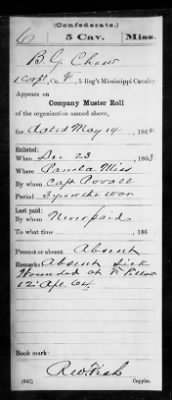 (Confederate.)
6 5 Cav. Miss.
B. G. Chew
Capt, Co. F, 5 Reg't Mississippi Cavalry.
Appears on
Company Muster Roll
of the organization named above,
for dated May 14, 1864
Enlisted:
When Dec 23, 1863
Where Panola Miss
By whom Capt Povall
Period 3 years or the war
Last paid:
By whom Never paid
To what time , 186
Present or absent Absent
Remarks: Absent sick
Wounded at Ft Pillow
12 Apl. 64
Book mark:
R. W. Fish
(642) Copyist.